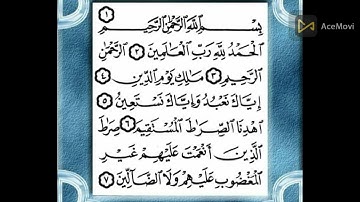 AceMovi
١
بِسْمِ اللَّهِ الرَّحْمَٰنِ الرَّحِيمِ
الْحَمْدُ لِلَّهِ رَبِّ الْعَالَمِينَ ٢ الرَّحْمَٰنِ
الرَّحِيمِ ٣ مَالِكِ يَوْمِ الدِّينِ ٤
إِيَّاكَ نَعْبُدُ وَإِيَّاكَ نَسْتَعِينُ ٥
اهْدِنَا الصِّرَاطَ الْمُسْتَقِيمَ ٦ صِرَاطَ
الَّذِينَ أَنْعَمْتَ عَلَيْهِمْ غَيْرِ
الْمَغْضُوبِ عَلَيْهِمْ وَلَا الضَّالِّينَ ٧